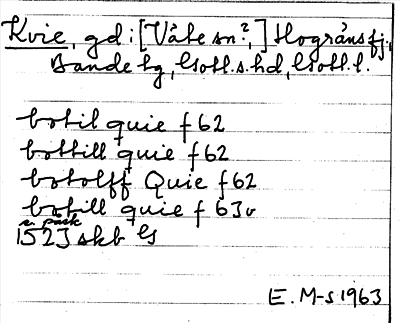 Kvie, gd: [Våte sn?,] Hogräns fj.,
Bande tg, Gotl.s.hd, Gotl.l.
botil quie f 62
bottill quie f 62
botolff Quie f 62
botill quie f 63v
e. påsk
1523 skb G
E. M-s 1963